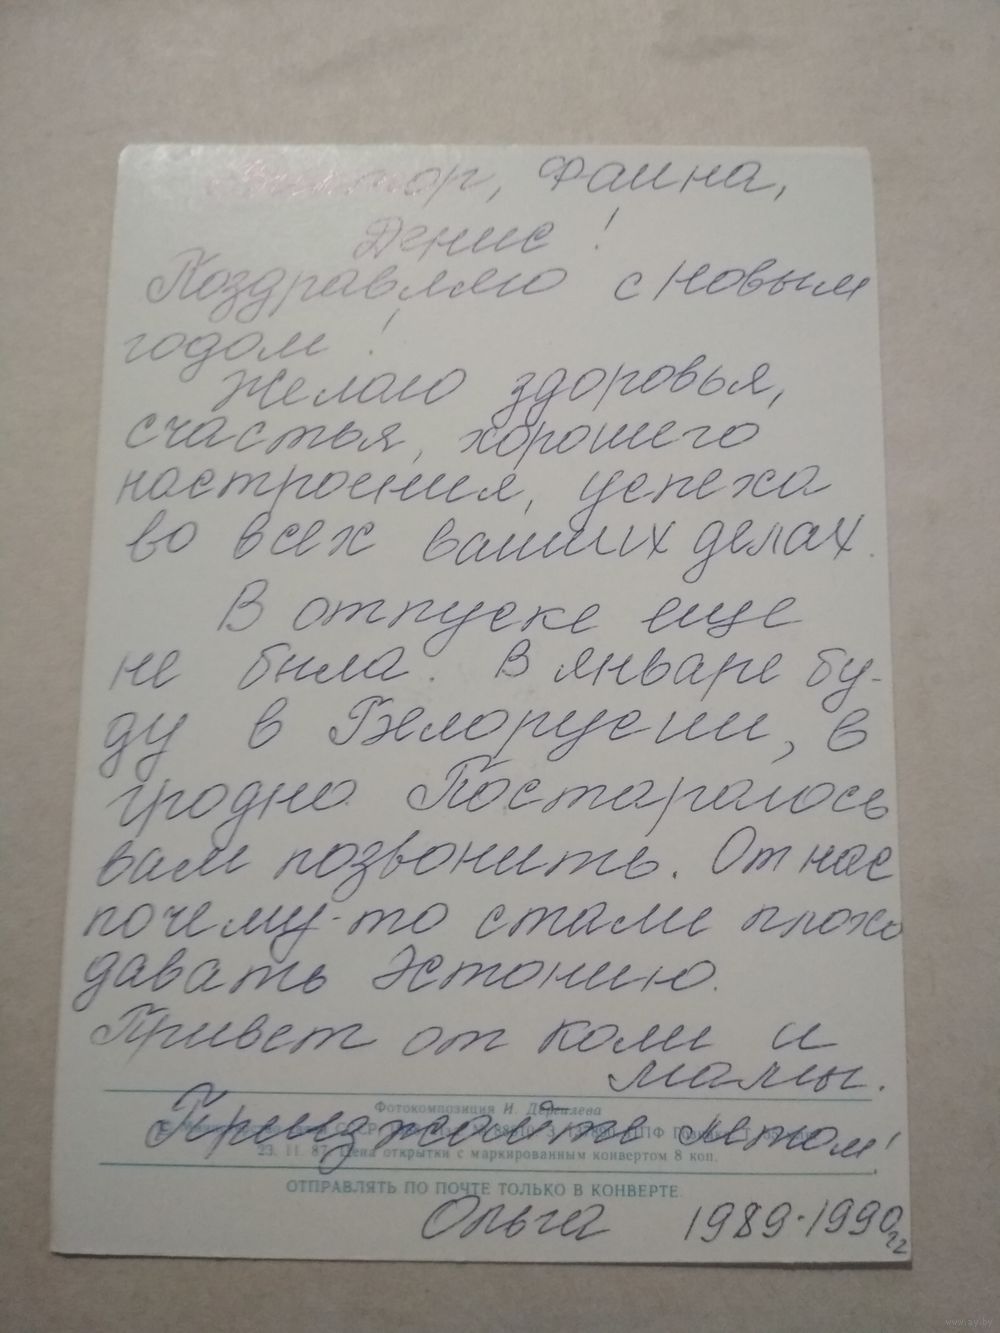 Виктор, Фаина,
Денис!
Поздравляю с Новым
годом!
Желаю здоровья,
счастья, хорошего
настроения, успеха
во всех ваших делах.
В отпуске еще
не была. В январе бу-
ду в Белорусии, в
гродно. Постараюсь
вам позвонить. От нас
почему-то стали плохо
давать Эстонию.
Привет от Коли и
мамы.
Фотокомпозиция И. Дергилева
Приезжайте летом!
23. 11. 87. Цена открытки с маркированным конвертом 8 коп.
ОТПРАВЛЯТЬ ПО ПОЧТЕ ТОЛЬКО В КОНВЕРТЕ
Ольга 1989-1990гг
www.ay.by